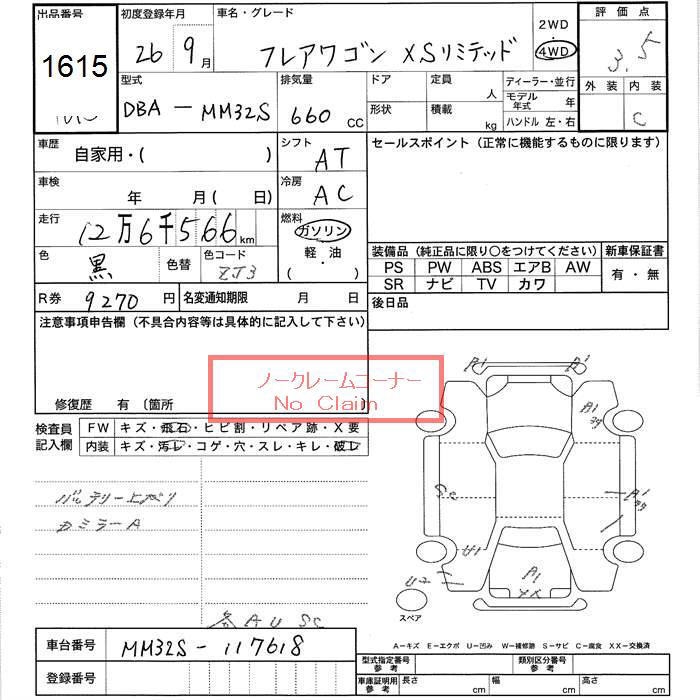 出品番号 初度登録年月 車名・グレード 2WD・4WD 評価点
1615 26年 9月 フレアワゴン XSリミテッド 3.5
型式 排気量 ドア 定員 人 ディーラー・並行 外装 内装
DBA-MM32S 660 CC 形状 積載 kg モデル年式 年 C
ハンドル 左・右
車歴 自家用・( ) シフト AT セールスポイント (正常に機能するものに限ります)
車検 年 月( 日) 冷房 AC
走行 12万6千566km 燃料 ガソリン 軽・油 ( ・ )
色 黒 色替 色コード ZJ3
装備品 (純正品に限り○をつけてください) 新車保証書
PS PW ABS エアB AW 有・無
SR ナビ TV カワ
R券 9270円 名変通知期限 月 日 後日品
注意事項申告欄 (不具合内容等は具体的に記入して下さい)
ノークレームコーナー
No Claim
修復歴 有 〔箇所 〕
検査員記入欄 FW キズ・飛石・ヒビ割・リペア跡・X要
内装 キズ・汚レ・コゲ・穴・スレ・キレ・破レ
バッテリー上がり
カミラーA
各AUSC
A1 A1
A1
A1
U1
U2
A1
スペア
A-キズ E-エクボ U-凹み W-補修跡 S-サビ C-腐食 XX-交換済
車台番号 MM32S-117618
登録番号
型式指定番号 参考 類別区分番号 参考
車庫証明用 参考 長さ cm 幅 cm 高さ cm